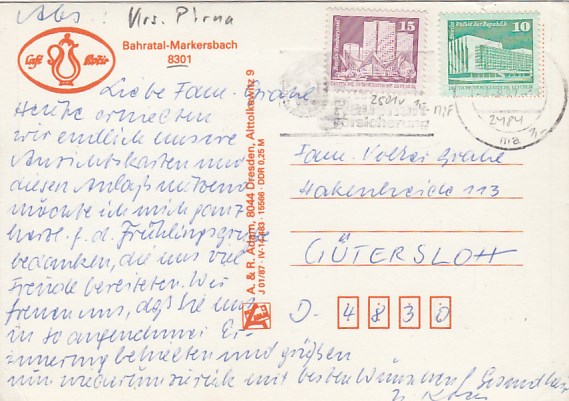 Abs: Krs. Pirna
Café
Bahratal-Markersbach
8301
Liebe Fam. Grahe
Heute erhielten
wir endlich unsere
Ansichtskarten und
diesen Anlaß
möchte ich mich ganz
herzl. f. d. Frühlingsgrüße
bedanken, die uns viel
Freude bereiteten. Wir
freuen uns, daß Sie uns
in so angenehmer Er-
innerung behielten und grüßen
nun wiederum zurück mit besten Wünschen f. Gesundheit
A. & R. Adam, 8044 Dresden, Alttolkewitz 9
J 01/87 · IV-14-483 · 15566 · DDR 0,25 M
15
10
Palast der Republik
Fam. Volker Grahe
Hakenheide 113
GÜTERSLOH
D- 4830